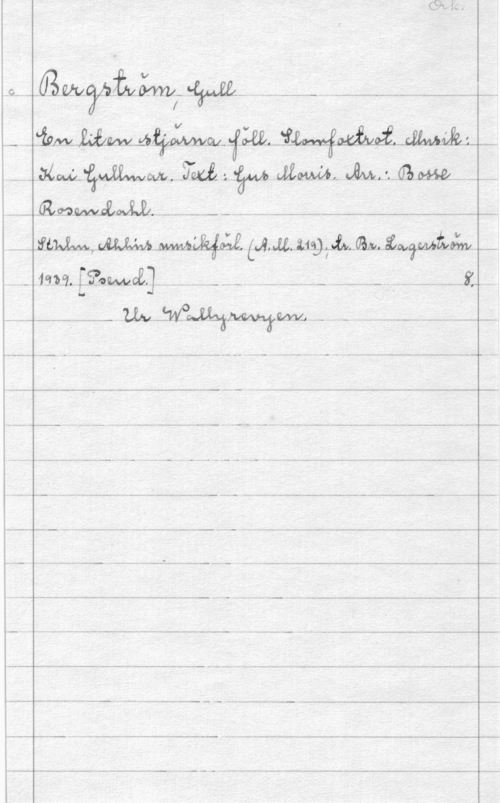 Ork.
Bergström, Gull
En liten stjärna föll. Slowfoxtrot. Musik:
Kai Gullmar. Text: Gus Morris. Arr.: Bosse
Rosendahl.
Sthlm, Ahlins musikförl. (A.M. 219), tr. Br. Lagerström
1939. [Pseud.] 8.
Ur Wallyrevyen.